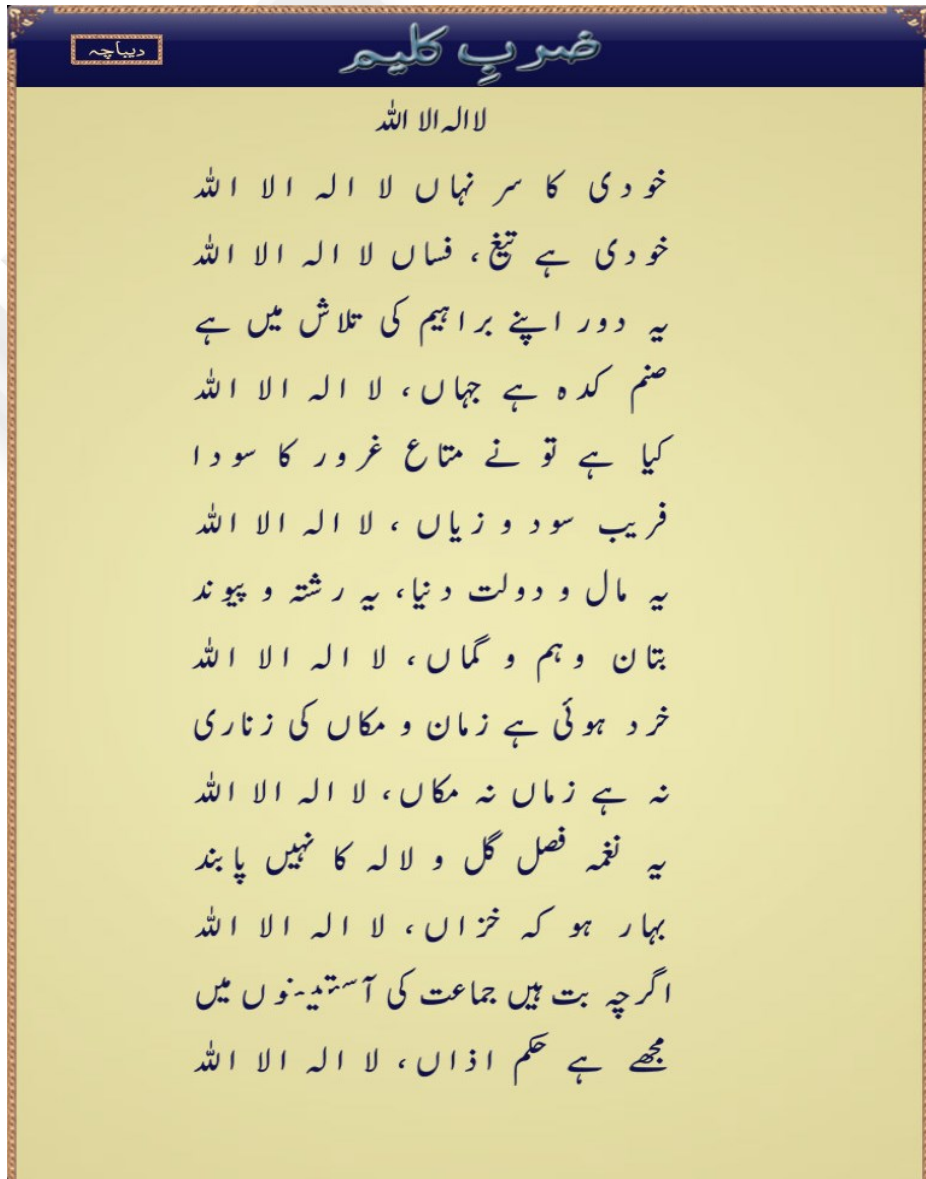 ضربِ کلیم
دیباچہ
لا الہ الا اللہ
خودی کا سر نہاں لا الہ الا اللہ
خودی ہے تیغ، فساں لا الہ الا اللہ
یہ دور اپنے براہیم کی تلاش میں ہے
صنم کدہ ہے جہاں، لا الہ الا اللہ
کیا ہے تو نے متاع غرور کا سودا
فریب سود و زیاں ، لا الہ الا اللہ
یہ مال و دولت دنیا، یہ رشتہ و پیوند
بتان وہم و گماں، لا الہ الا اللہ
خرد ہوئی ہے زمان و مکاں کی زناری
نہ ہے زماں نہ مکاں، لا الہ الا اللہ
یہ نغمہ فصل گل و لالہ کا نہیں پابند
بہار ہو کہ خزاں، لا الہ الا اللہ
اگرچہ بت ہیں جماعت کی آستینوں میں
مجھے ہے حکم اذاں، لا الہ الا اللہ